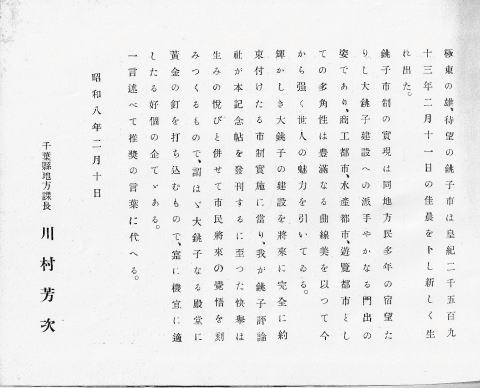 極東の雄、待望の銚子市は皇紀二千五百九
十三年二月十一日の佳晨を卜し新しく生
れ出た。
銚子市制の實現は同地方民多年の宿望た
りし大銚子建設への派手やかなる門出の
姿であり、商工都市、水產都市、遊覽都市とし
ての多角性は豊滿なる曲線美を以つて今
から强く世人の魅力を引いてゐる。
輝かしき大銚子の建設を將來に完全に約
束付けたる市制實施に當り、我が銚子評論
社が本記念帖を發刊するに至つた快擧は
生みの悅びと併せて市民將來の覺悟を刻
みつくるもので、謂はゞ大銚子なる殿堂に
黃金の釘を打ち込むもので、寔に機宜に適
したる好個の企てゞある。
一言述べて推奬の言葉に代へる。
昭和八年二月十日
千葉縣地方課長 川村芳次